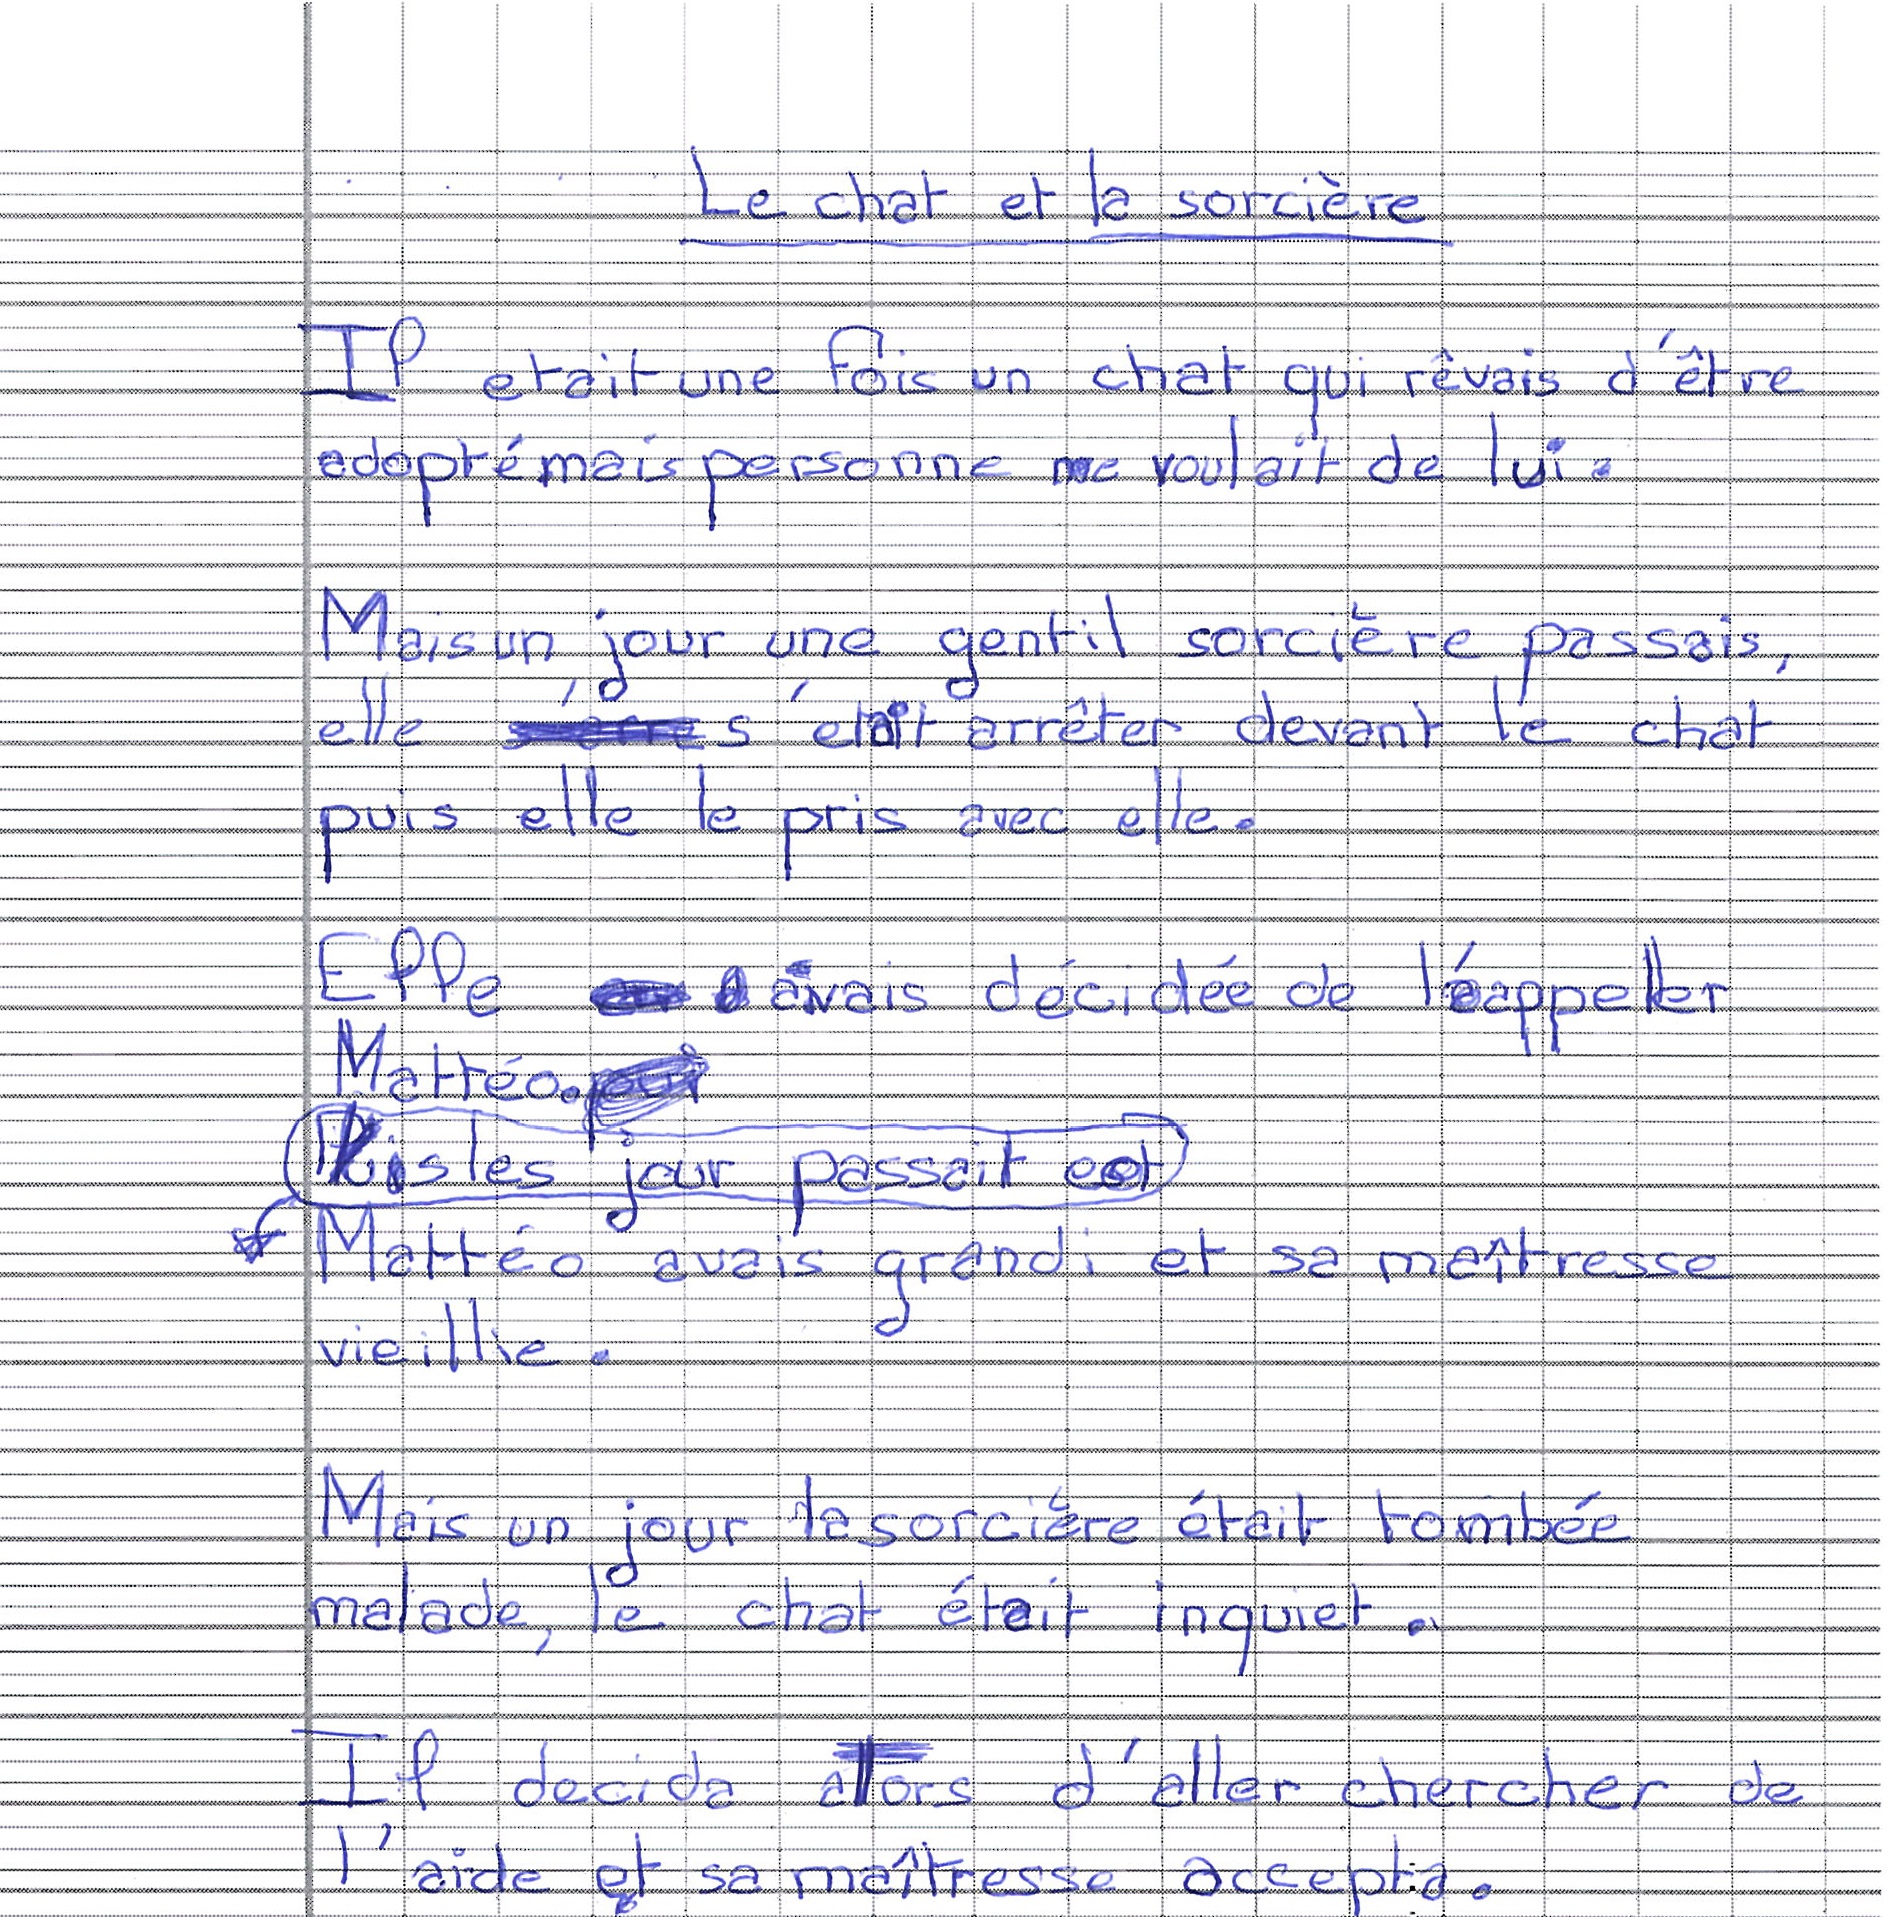 Le chat et la sorcière
Il etait une fois un chat qui rêvais d'être
adopté mais personne ne voulait de lui.
Mais un jour une gentil sorcière passais,
elle s'était arrêter devant le chat
puis elle le pris avec elle.
Elle avais décidée de l'appeller
Mattéo.
Puis les jour passait et
Mattéo avais grandi et sa maîtresse
vieillie.
Mais un jour la sorcière était tombée
malade, le chat était inquiet.
Il decida alors d'aller chercher de
l'aide et sa maîtresse accepta.